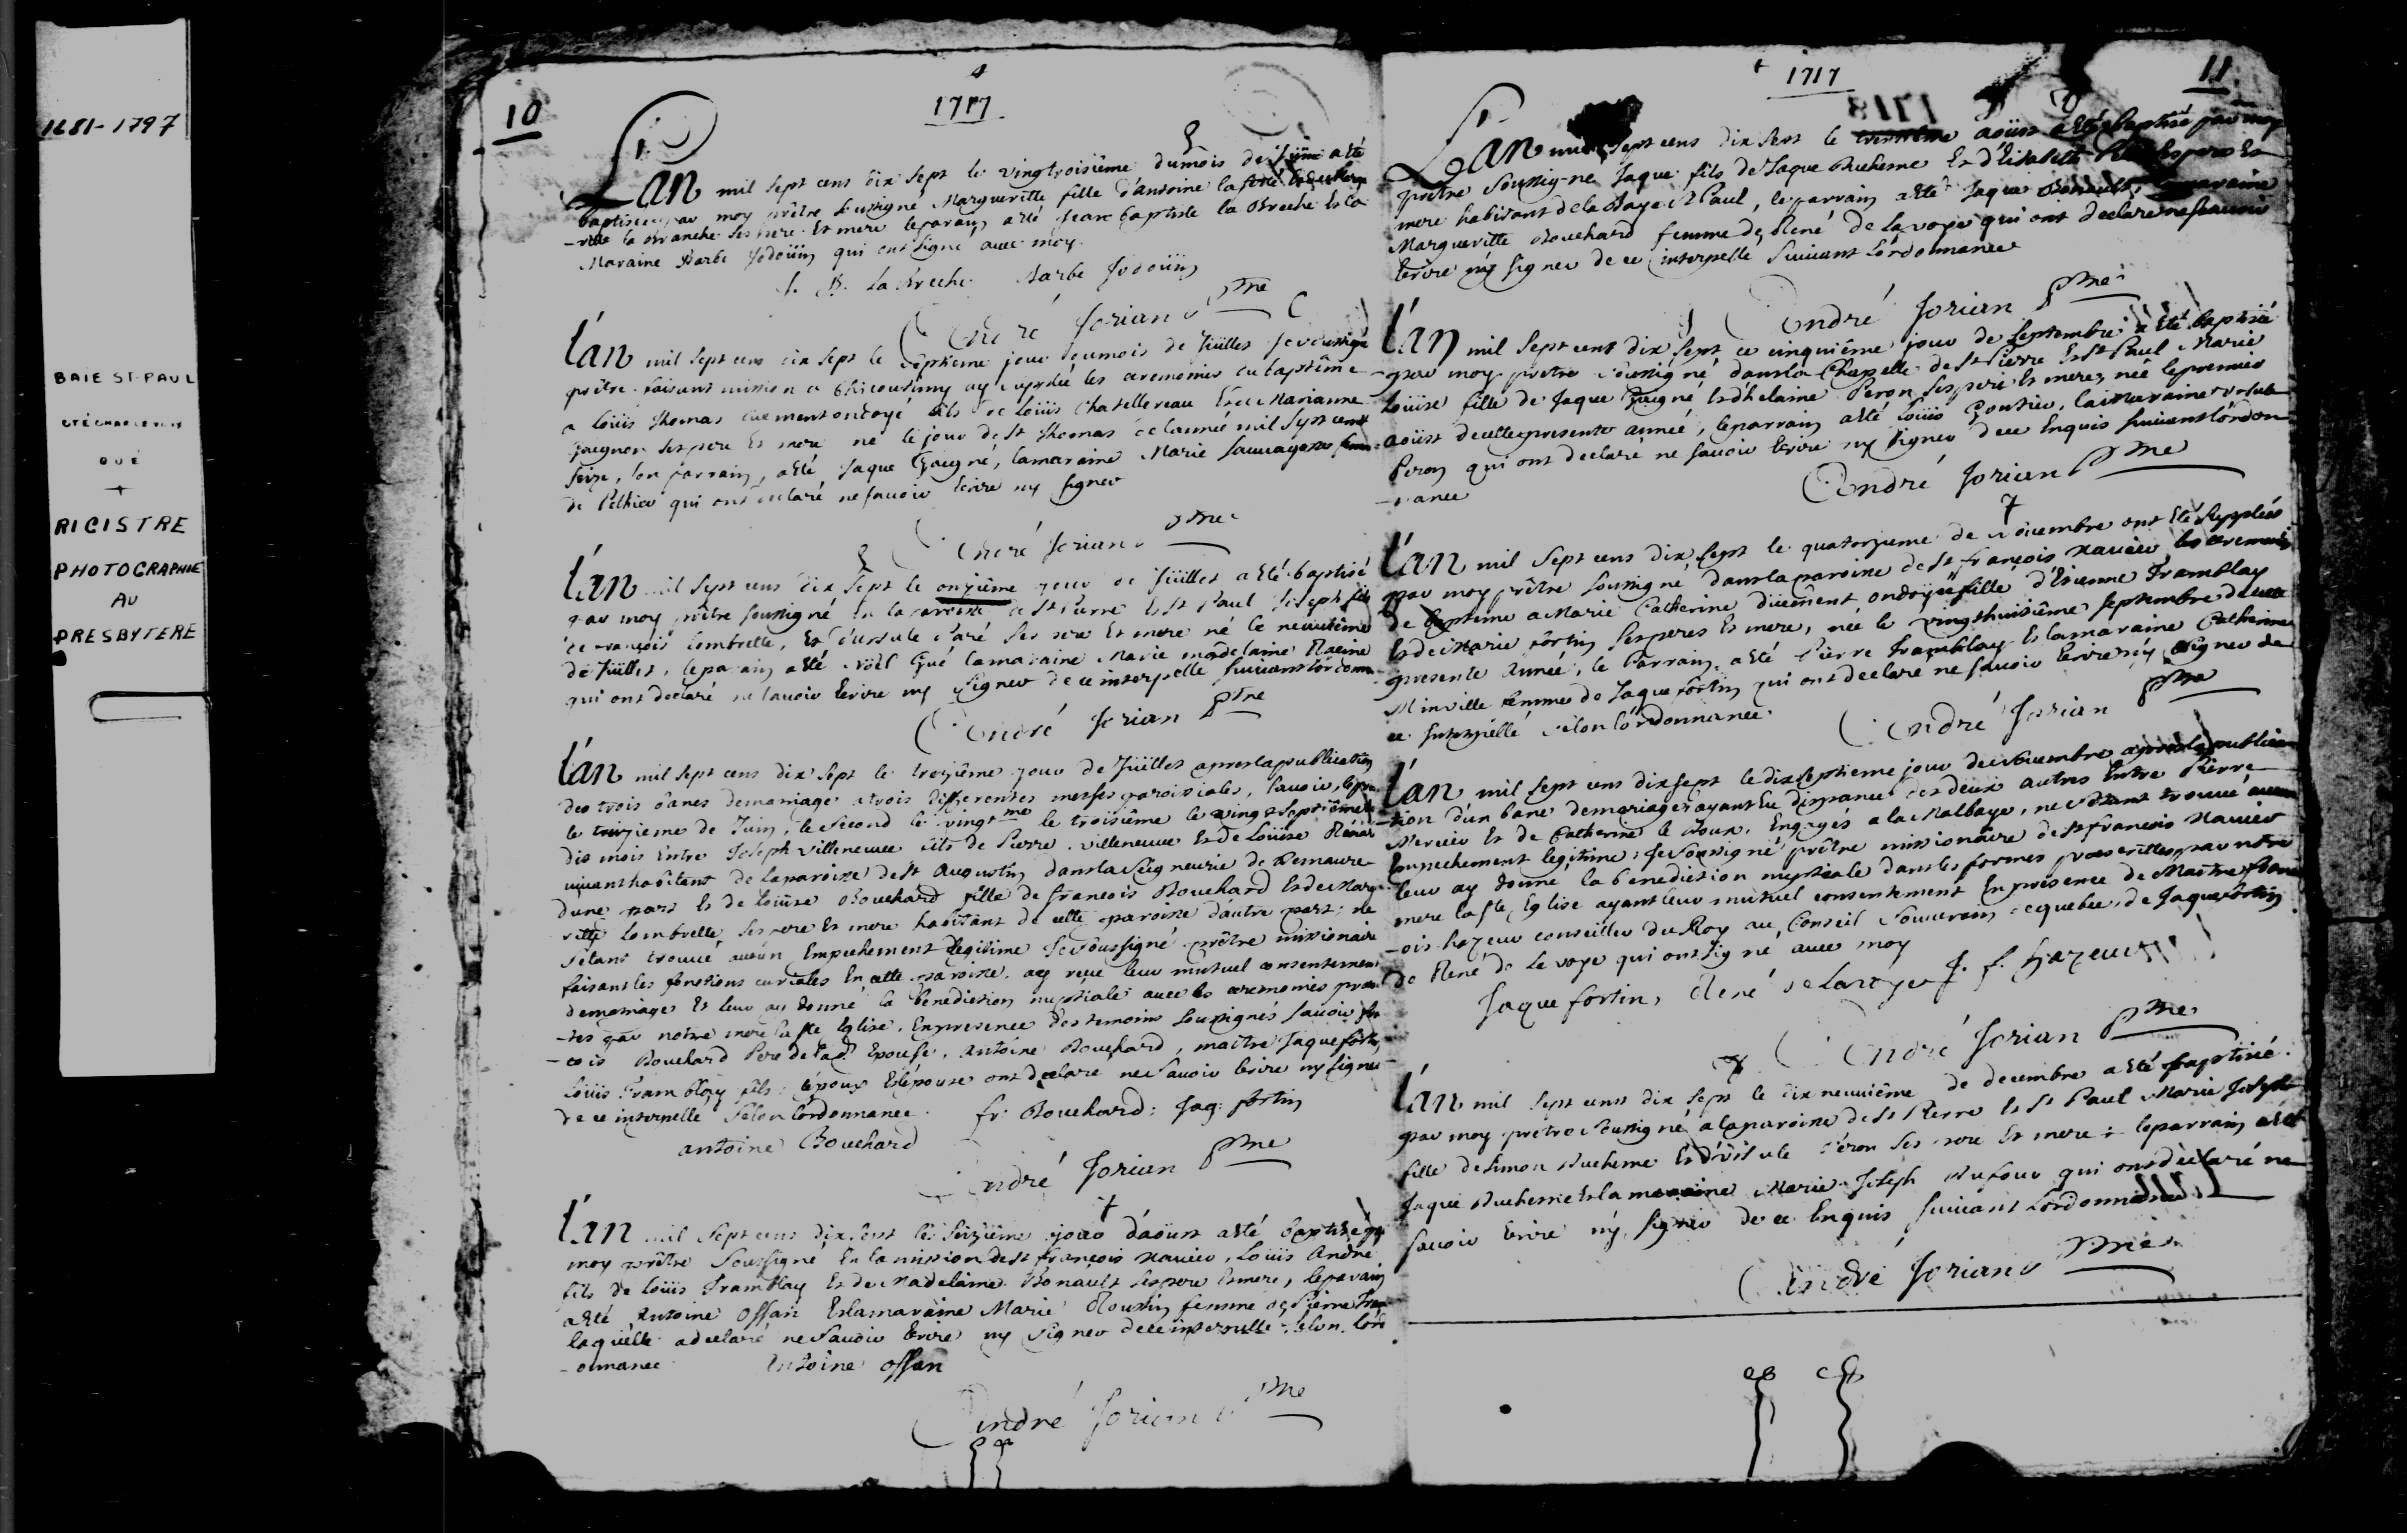 1681-1797
BAIE ST-PAUL
CTÉ CHARLEVOIX
QUÉ
+
RICISTRE
PHOTOGRAPHIE
AU
PRESBYTERE
10
1717
L'an mil sept cens dix sept le vingtroisième du mois de Juin a eté
baptisée par moy prêtre soussigné Margueritte fille d'antoine la ferté
la branche ses pere et mere le parain a eté Jean baptiste la Breche et la
Maraine Barbe Jodoüin qui ont signé avec moy.
J. B. La Breche Barbe Jodoüin
André Jorian ptre
L'an mil sept cens dix sept le septieme jour du mois de Jüillet Je soussigné
prêtre faisant mission a Chicoutimy ay supplée les ceremonies du baptême
a loüis thomas duement ondoyé fils de loüis Chatellereau et de Marianne
gaignon ses pere et mere né le jour de St thomas de l'année mil sept cent
seize, son parrain, a eté Jaque Gaigné, la maraine Marie sauvagesse femme
de Peltier qui ont declaré ne savoir écrire ny signer
André Jorian ptre
L'an mil sept cens dix sept le onzième jour de Jüillet a eté baptisé
par moy prêtre soussigné en la paroisse de St Pierre et St Paul Joseph fils
de françois lombrette, et d'ursule Paré ses pere et mere né le neuvième
de Jüillet, le parain a eté Noël Gué la maraine Marie madelaine Racine
qui ont declaré ne savoir écrire ny signer de ce interpellé suivant lordonn
André Jorian Ptre
L'an mil sept cens dix sept le treizième jour de Jüillet apres la publication
des trois banes de mariage a trois differentes messes paroissiales, savoir, le pr
le treizieme de Juin, le second le vingtme le troisième le vingt septième
dis mois entre Joseph villeneuve fils de Pierre villeneuve et de Loüise
vivant habitant de la paroisse de St Augustin dans la seigneurie de Demaure
dune part et de loüise Bouchard fille de françois Bouchard et de Marg
ritte lombrette ses pere et mere habitant de cette paroisse d'autre part; ne
s'étant trouvé aucun Empechement legitime Je soussigné prêtre missionaire
faisant les fonctions curiales En cette paroisse, ay reçu leur mutuel consentement
de mariage et leur ay donné la benediction nuptiale avec les ceremonies pres
-tes par notre mere la ste Eglise, En presence des temoins soussignés savoir fr
-cois Bouchard Pere de lad. Epouse, Antoine Bouchard, maître Jaque fortin,
loüis Tramblay fils: lépoux et lépouse ont declare ne savoir ecrire ny signer
de ce interpellé selon lordonnance. fr. Bouchard: Jaq: fortin
antoine Bouchard
André Jorian Ptre
L'an mil sept cens dix sept le seizième jour d'aoüst a eté baptisé par
moy prêtre soussigné En la mission de St françois Xavier, Loüis André
fils de loüis Tramblay et de Madelaine Bonault ses pere et mere, le parain
a eté Antoine Offan et la maraine Marie Roussin femme de Pierre
laquelle a declaré ne savoir écrire ny signer de ce interpellé selon lord
-onnance Antoine offan
André Jorian Ptre
11
1717
L'an mil sept cens dix sept le aoüst a eté baptisé par moy
prêtre soussigné Jaque fils de Jaque Duchesne et d'Elisabeth ses pere et
mere habitant de la Baye St Paul, le parrain a eté Jaque Bonault, la maraine
Margueritte Bouchard femme de René de la voye qui ont declaré ne savoir
écrire ny signer de ce interpellé suivant lordonnance
André Jorian Ptre
L'an mil sept cent dix sept ce cinquième jour de septembre a eté baptisée
par moy prêtre soussigné dans la chapelle de St Pierre et St Paul Marie
loüise fille de Jaque Gaigné et d'helaine Peron ses pere et mere, née le premier
aoüst de cette presente année, le parrain a eté loüis Gontier, la maraine ursule
Peron qui ont declaré ne savoir écrire ny signer de ce Enquis suivant lordon
-nance
André Jorian Ptre
L'an mil sept cens dix sept le quatorzieme de novembre ont eté Suppleés
par moy prêtre soussigné dans la paroisse de St françois Xavier les ceremonies
de baptême a Marie Catherine düement ondoyée fille d'Etienne Tramblay
et de Marie fortin ses peres et mere, née le vingthuitième septembre de cette
presente Année, le Parrain a eté Pierre Tramblay et la maraine Catherine
Minville femme de Jaque fortin qui ont declaré ne savoir écrire ny signer de
ce Interpellé selon lordonnance.
André Jorian Ptre
L'an mil sept cens dix sept le dix septieme jour de novembre apres la publica
-tion d'un bane de mariage ayant Eu dispance des deux autres Entre Pierre
Mercier et de Catherine le Roux, Engagés a la Malbaye, ne s'étant trouvé aucun
Empechement legitime; Je soussigné prêtre missionaire de St françois Xavier
leur ay donné la benediction nuptiale dans les formes prescrittes par notre
mere la ste Eglise ayant leur mutuel consentement En presence de Maître fran
-çois hazeur conseiller du Roy au Conseil Souverain de quebec, de Jaque fortin
de René de Lavoye qui ont signé avec moy
Jaque fortin, René de Lavoye J. f. hazeur
André Jorian Ptre
L'an mil sept cent dix sept le dix neuvième de decembre a eté baptisée
par moy prêtre soussigné a la paroisse de St Pierre et St Paul Marie Joseph
fille de simon Duchesne et d'ursule Péron ses pere et mere; le parrain a eté
Jaque Duchesne et la maraine Marie Joseph Dufour qui ont declaré ne
savoir écrire ny signer de ce Enquis suivant lordonnance
André Jorian Ptre